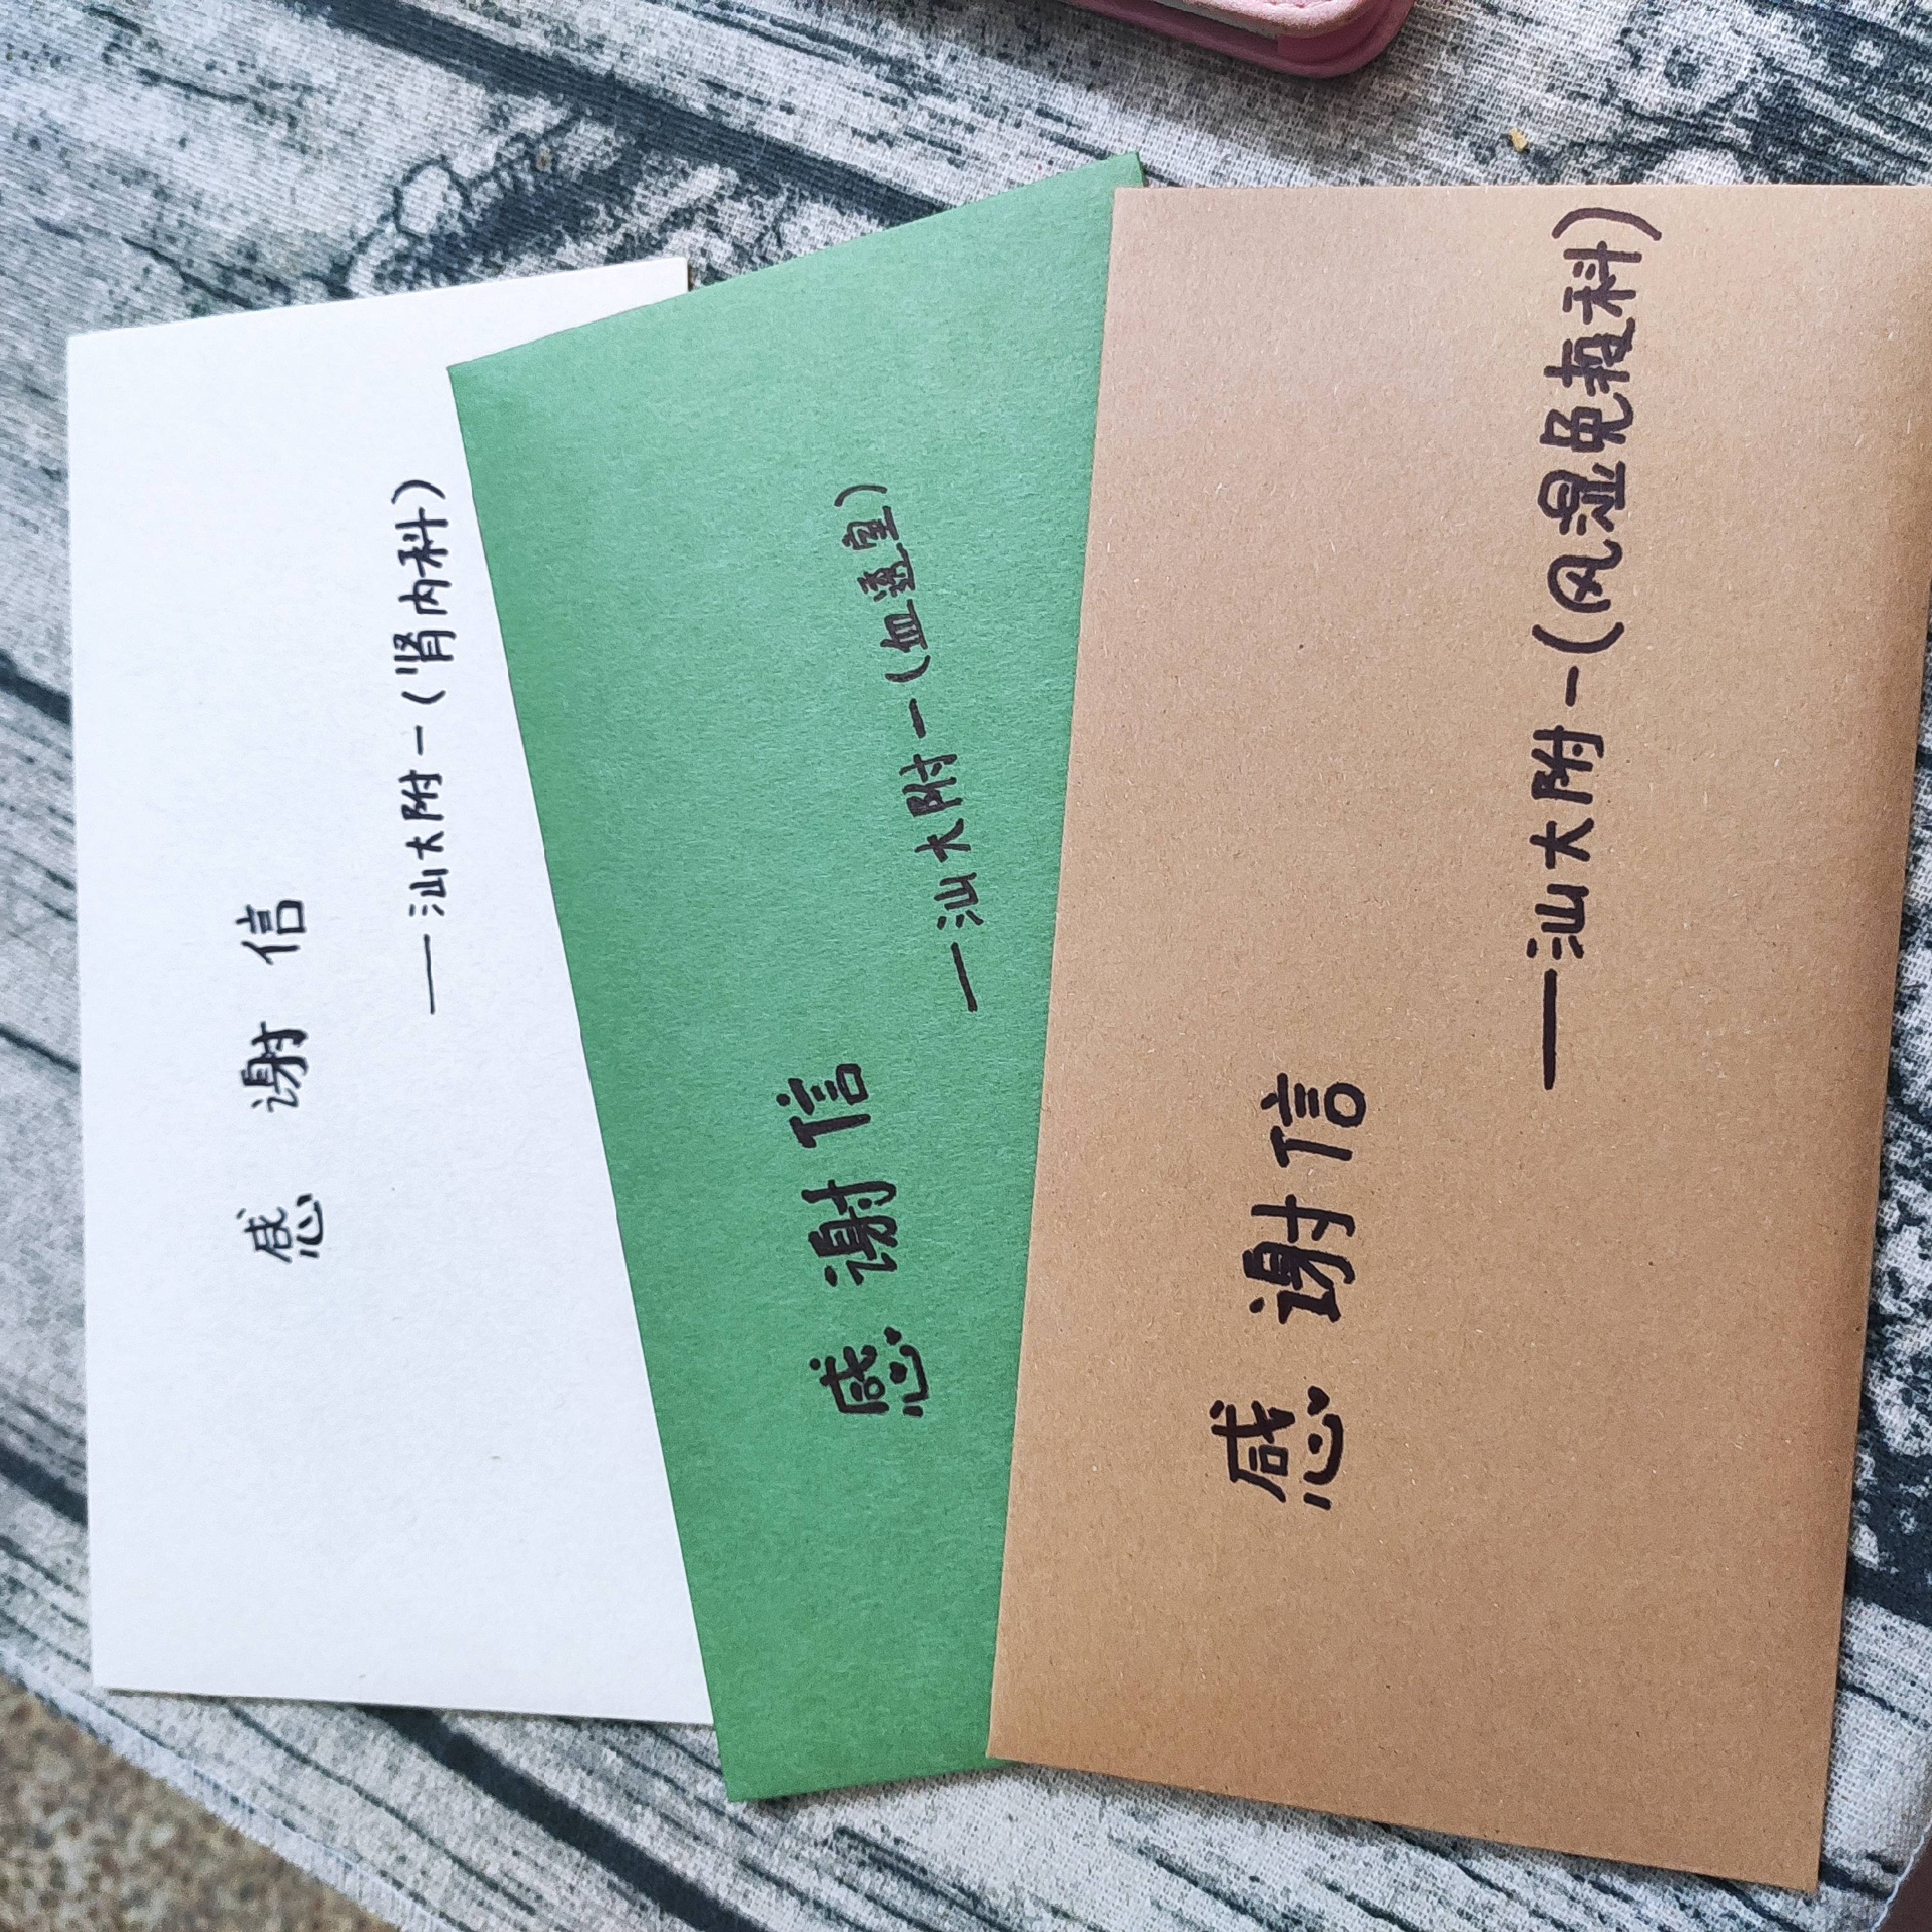 感谢信
——汕大附一(肾内科)
感谢信
——汕大附一(血透室)
感谢信
——汕大附一(风湿免疫科)